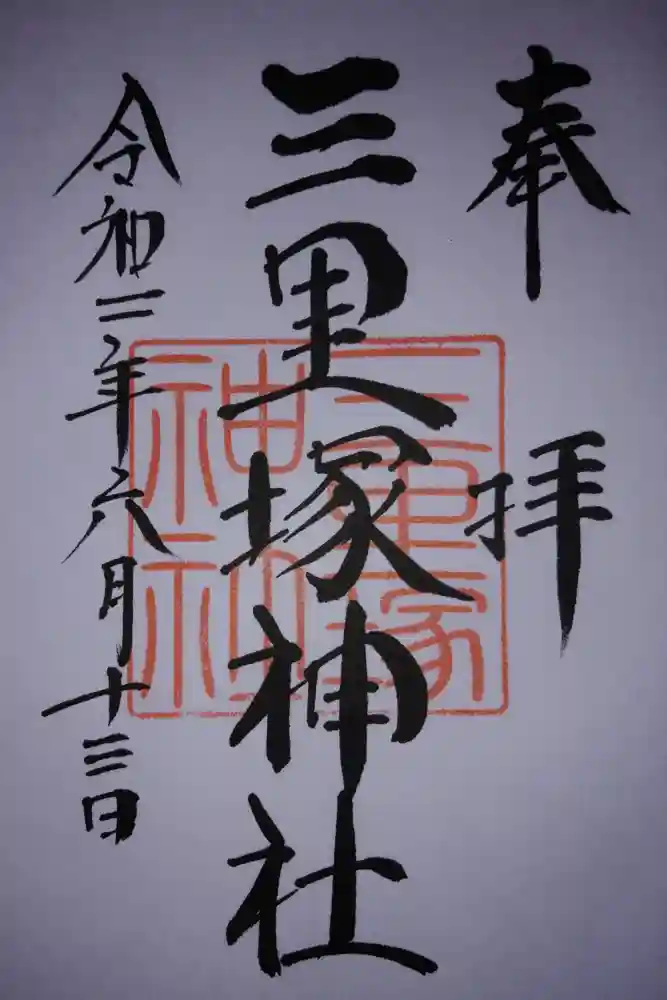 奉拝
三里塚神社
令和二年六月十三日
三里塚
神社